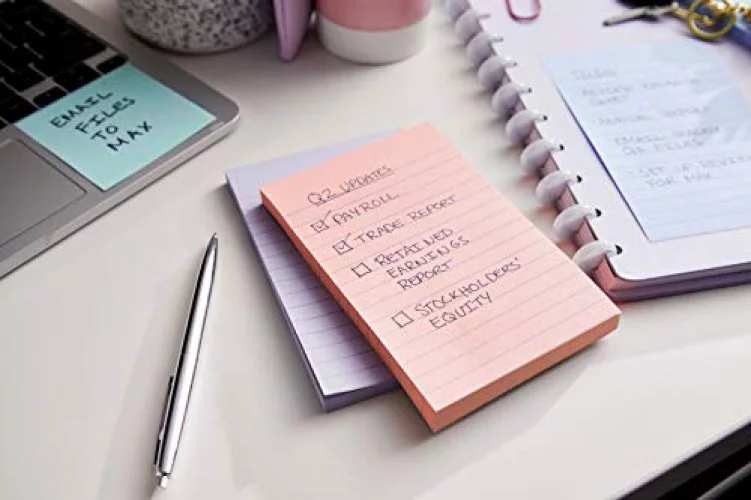 EMAIL
FILES
TO
MAX
Q2 UPDATES
PAYROLL
TRADE REPORT
RETAINED
EARNINGS
REPORT
STOCKHOLDERS'
EQUITY
REVIEW
REPORT
EMAIL
FILES
SET UP REVIEW
FOR MAX